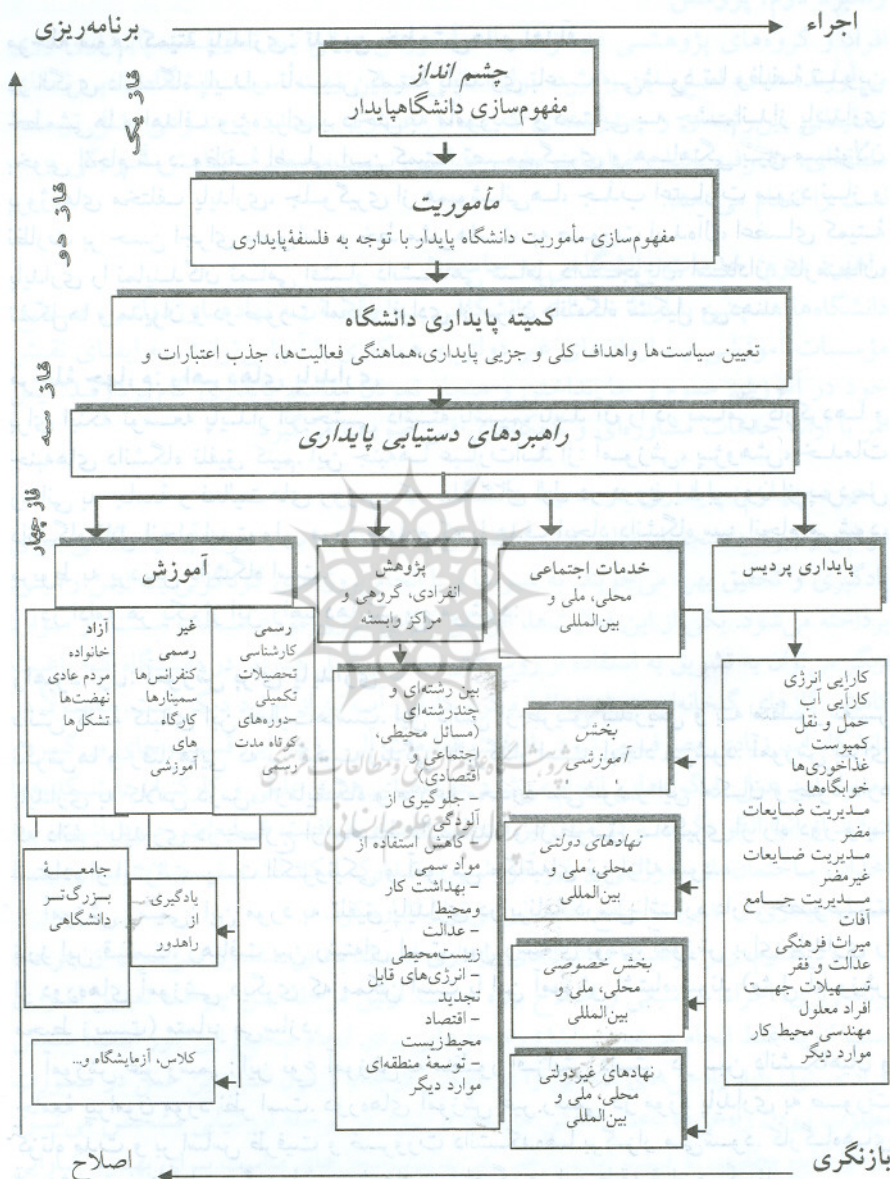 برنامه‌ریزی
اجراء
فاز یک
فاز دو
فاز سه
فاز چهار
چشم انداز
مفهوم‌سازی دانشگاهپایدار
مأموریت
مفهوم‌سازی مأموریت دانشگاه پایدار با توجه به فلسفۀپایداری
کمیته پایداری دانشگاه
تعیین سیاست‌ها واهداف کلی و جزیی پایداری،هماهنگی فعالیت‌ها، جذب اعتبارات و
راهبردهای دستیابی پایداری
پایداری پردیس
کارایی انرژی
کارآیی آب
حمل و نقل
کمپوست
غذاخوری‌ها
خوابگاه‌ها
مــدیریت ضــایعات
مضر
مــدیریت ضــایعات
غیرمضر
مــدیریت جــامع
آفات
میراث فرهنگی
عدالت و فقر
تســهیلات جهــت
افراد معلول
مهندسی محیط کار
موارد دیگر
خدمات اجتماعی
محلی، ملی و
بین‌المللی
بخش
آموزشی
نهادهای دولتی
محلی، ملی و
بین‌المللی
بخش خصوصی
محلی، ملی و
بین‌المللی
نهادهای غیردولتی
محلی، ملی و
بین‌المللی
پژوهش
انفرادی، گروهی و
مراکز وابسته
بین رشته‌ای و
چندرشته‌ای
(مسائل محیطی،
اجتماعی و
اقتصادی)
- جلوگیری از
آلودگی
- کاهش استفاده از
مواد سمی
- بهداشت کار
ومحیط
- عدالت
زیست‌محیطی
- انرژی‌های قابل
تجدید
- اقتصاد
محیط‌زیست
- توسعۀ منطقه‌ای
موارد دیگر
آموزش
رسمی
کارشناسی
تحصیلات
تکمیلی
-دوره‌های
کوتاه مدت
رسمی
غیر
رسمی
کنفرانس‌ها
سمینارها
کارگاه
های
آموزشی
آزاد
خانواده
مردم عادی
نهضت‌ها
تشکل‌ها
جامعــۀ
بــزرگ‌تــر
دانشگاهی
یادگیری
از
راهدور
کلاس، آزمایشگاه و...
اصلاح
بازنگری
پژوهشگاه علوم انسانی و مطالعات فرهنگی
پرتال جامع علوم انسانی